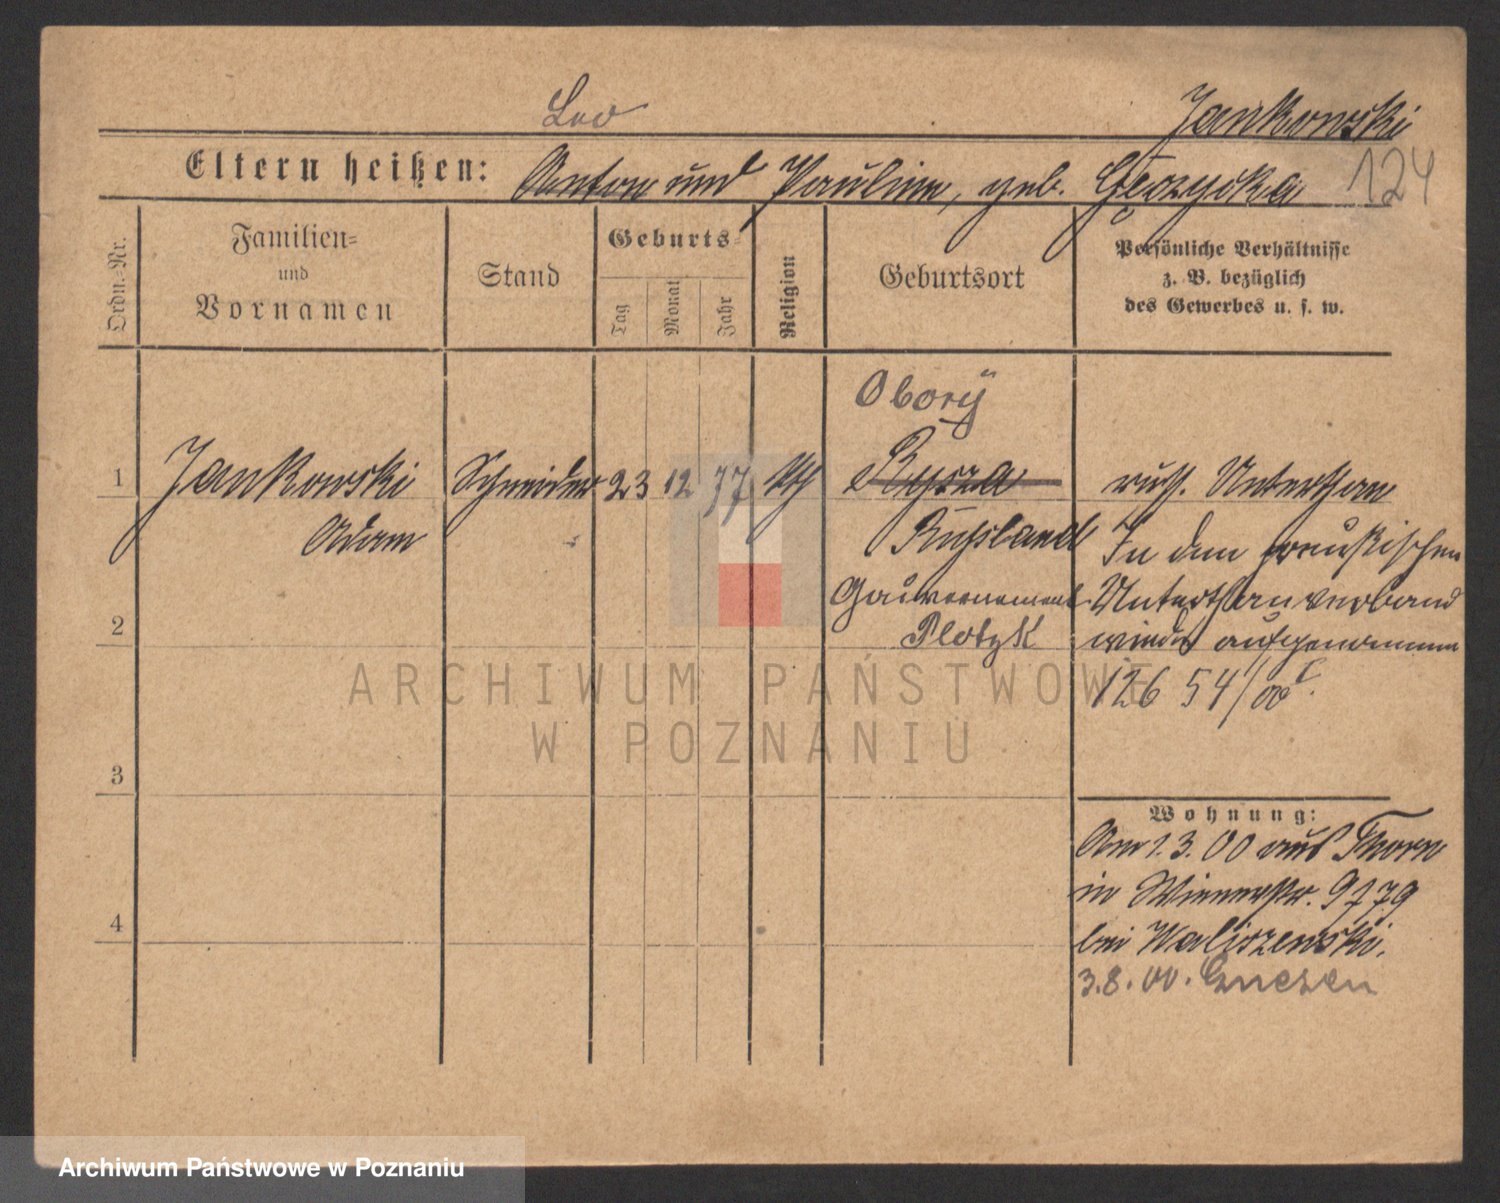 Leo
Jankowski
Eltern heißen: Anton und Pauline, geb.
124
Ordn.-Nr.
Familien-
und
Vornamen
Stand
Geburts-
Tag
Monat
Jahr
Religion
Geburtsort
Persönliche Verhältnisse
z. B. bezüglich
des Gewerbes u. s. w.
Obory
1 Jankowski Schneider 23 12 77 kth Rysza russ. Unterthan
Adam Russland In den preußischen
Gouvernement Unterthanverband
2 Plotzk wieder aufgenommen
126 54/00
ARCHIWUM PAŃSTWOWE
W POZNANIU
3
Wohnung:
Am 1.3.00 aus Thorn
in Wienerstr. 9
4 bei Waliszewski.
3.8.00. Gnesen
Archiwum Państwowe w Poznaniu